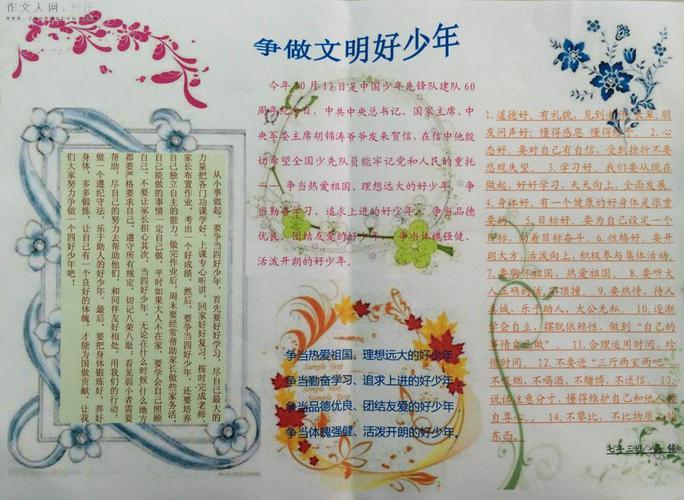 作文人网
争做文明好少年
今年10月13日是中国少年先锋队建队60
周年纪念日，中共中央总书记、国家主席、中
央军委主席胡锦涛爷爷发来贺信，在信中他殷
切希望全国少先队员能牢记党和人民的重托
——争当热爱祖国、理想远大的好少年，争
当勤奋学习、追求上进的好少年，争当品德
优良、团结友爱的好少年，争当体魄强健、
活泼开朗的好少年。
从小事做起，要争当四好少年，首先要好好学习，尽自己最大的
力量把各门功课学好，上课专心听讲，回家好好复习，按时完成老师、
家长布置作业，考出一个好成绩。然后，要争当四好少年，还要培养
自己独立自主的能力，做完作业后，周末要经常帮助家长做些家务活，
自己能做的事情一定自己做，平时如果大人不在家，要学会自己照顾
自己，不要让家长担心。其次，当四好少年，无论在什么时候什么地方
都要严格要求自己，遵守所有规定，切记八荣八耻；看见弱小者需要
帮助，尽自己的努力去帮助他们，和同伴友好相处，用我们的行动，
做一个遵纪守法、乐于助人的好少年。最后，要把身体锻炼好，养好
身体，多多锻炼，让自己有一个良好的体魄，才能为国做贡献，让我
们大家努力争做一个四好少年吧！
争当热爱祖国、理想远大的好少年
争当勤奋学习、追求上进的好少年、
争当品德优良、团结友爱的好少年、
争当体魄强健、活泼开朗的好少年。
1.道德好，有礼貌，见到
朋友问声好；懂得感恩，懂得 2.心
态好，要对自己有自信，受到挫折不要
悲观失望。3.学习好。我们要从现在
做起，好好学习，天天向上，全面发展。
4.身体好，有一个健康的好身体是很重
要的。5.目标好，要为自己设定一个
目标，向着目标奋斗。6.性格好，要开
朗大方，活泼向上，积极参与集体活动。
7.要胸 祖国，热爱祖国。8.要听大
人正确的话，不顶撞。9.要热情、待人
真诚、乐于助人，大公无私。10.逐渐
学会自立，摆脱依赖性，做到“自己的
事情自己做”。11.合理运用时间，珍
惜时间。12.不要进“三厅两室两吧”，
不吸烟、不喝酒、不赌博、不迷信。13.
说话注意分寸，懂得维护自己和他人的
自尊心。14.不攀比、不比物质上的
东西。
七年三班